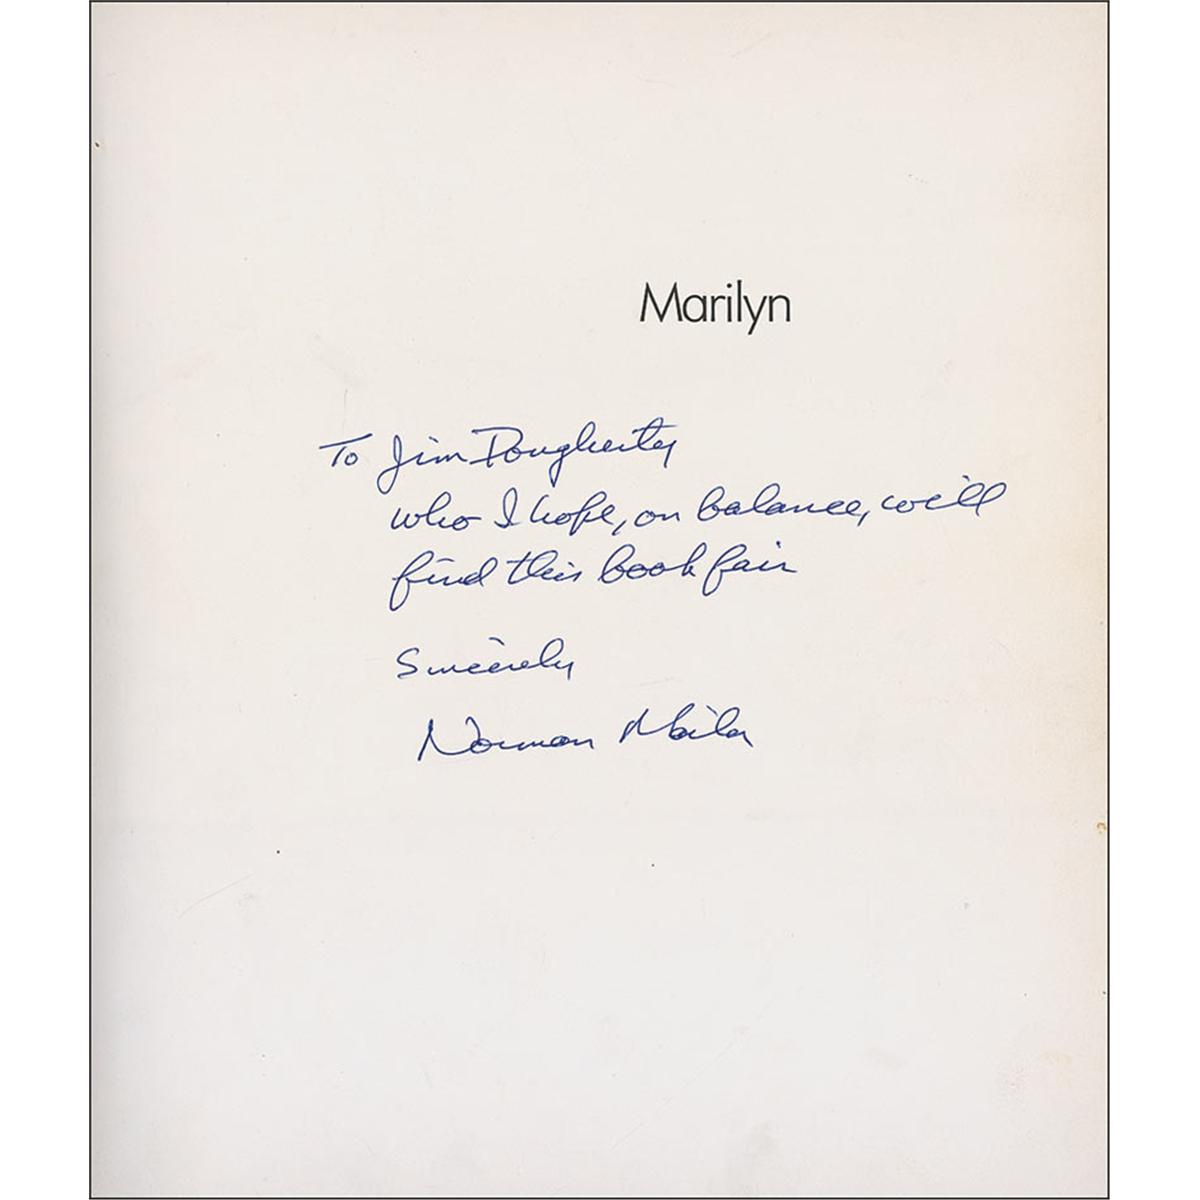 Marilyn
To Jim Dougherty
who I hope, on balance, will
find this book fair
Sincerely
Norman Mailer